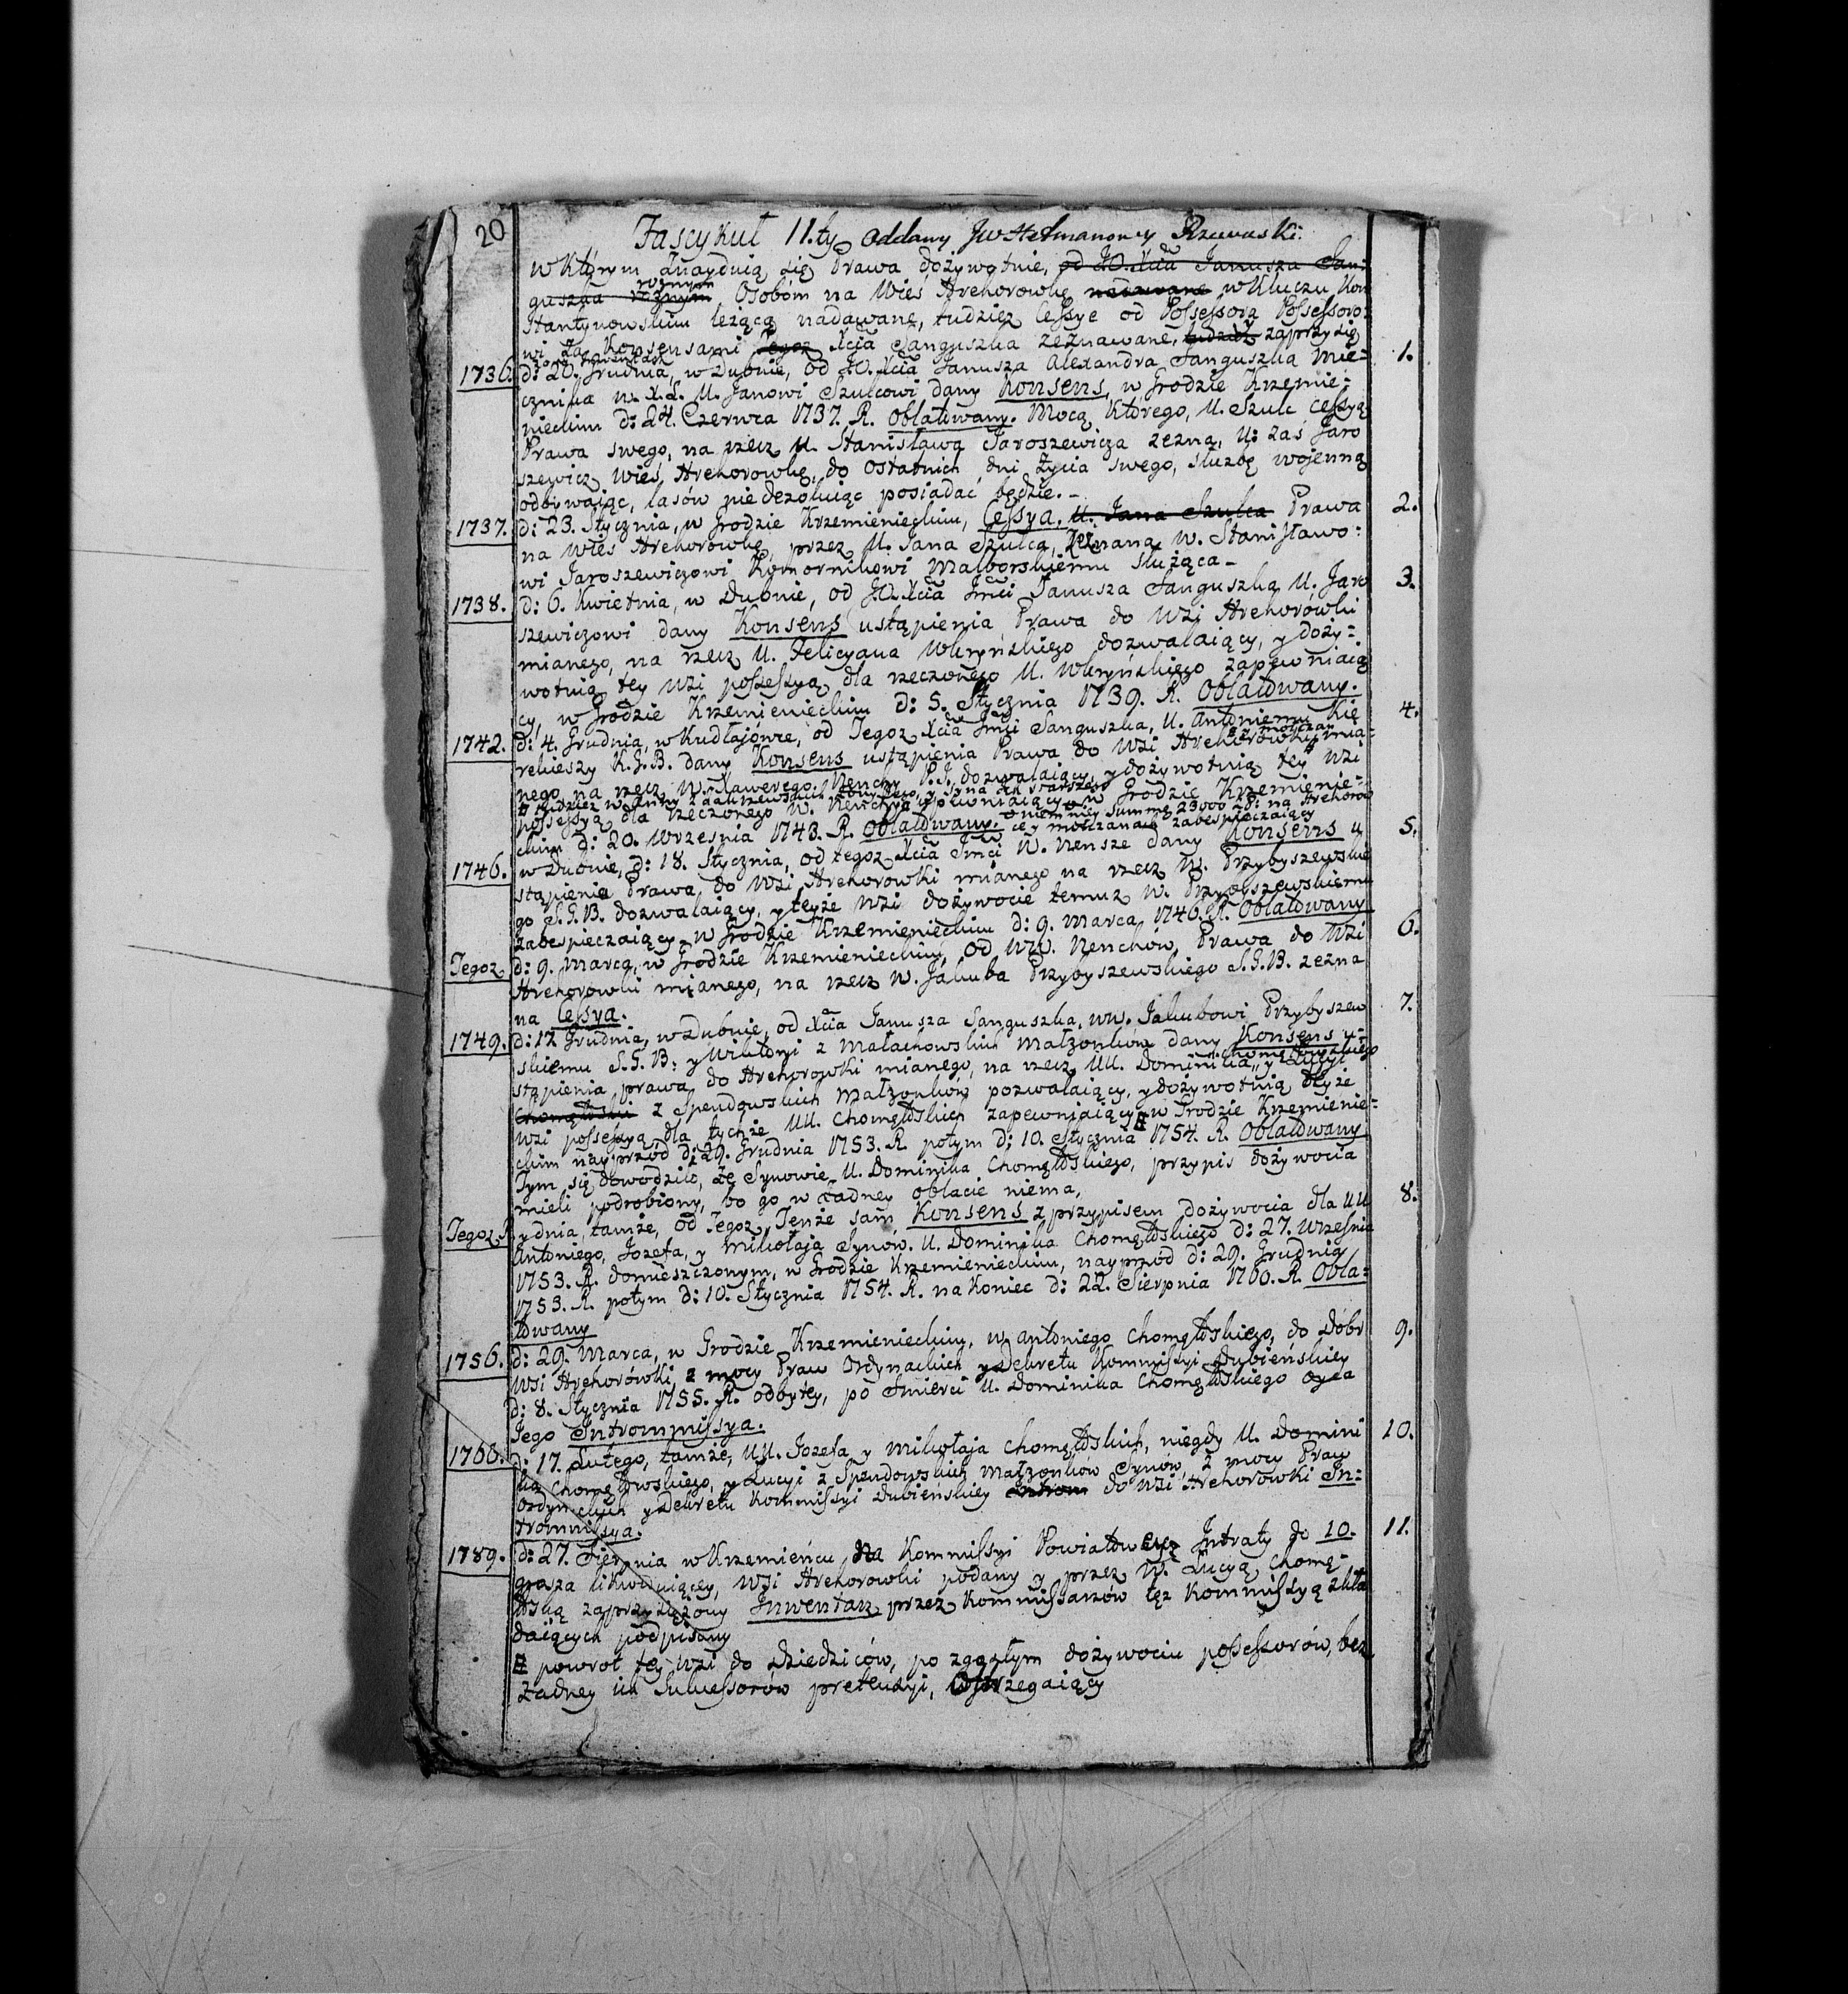 20
Fascykuł 11.ty oddany JW Hetmanowey Rzewuski:
w Którym znayduią się Prawa dożywotnie, od J.O. Xcia Janusza San-
guszka rożnym rożnym Osobóm na Wieś Hrehorowkę nadawane w Kluczu Kon
stantynowskim leżącą nadawane, tudzież Cessye od Possessora Possessoro:
wi za Konsensami tegoz Xcia Sanguszka zeznawane, tudzież zaprzysię
żony Inwentarz
1736. d: 20. Grudnia, w Dubnie, od J.O. Xcia Janusza Alexandra Sanguszka Mie- 1.
cznika W. X. L. U. Janowi Szulcowi dany Konsens, w Grodzie Krzemie-
nieckim d: 24. Czerwca 1737. R. Oblatowany. Mocą Którego, U. Szulc Cessyą
Prawa swego, na rzecz U. Stanisława Jaroszewicza zezna, U: zaś Jaro
szewicz Wieś Hrehorowkę, do ostatnich dni życia swego, służbę wojenną
odbywaiąc, lasów nie dezoluiąc posiadać będzie.-
1737. d: 23. Stycznia, w Grodzie Krzemienieckim, Cessya, U. Jana Szulca Prawa 2.
na Wieś Hrehorowkę, przez U. Jana Szulca, zeznana, W. Stanisławo:
wi Jaroszewiczowi Komornikowi Malborskiemu służąca-
1738. d: 6. Kwietnia, w Dubnie, od J.O. Xcia Jmci Janusza Sanguszka U. Jaro 3.
szewiczowi dany Konsens ustąpienia Prawa do Wsi Hrehorówki
mianego, na rzecz U. Felicyana Wkryńskiego dozwalaiący, y doży-
wotnią tey Wsi possessyą dla rzeczonego U. Wkryńskiego zapewniaią
cy, w Grodzie Krzemienieckim d: 5. Stycznia 1739. R. Oblatowany.
1742. d: 4. Grudnia, w Kudlajówce, od Tegoz Xcia Jmci Sanguszka, U. Antoniemu Kię 4.
rekieszy K.G.B. dany Konsens ustąpienia Prawa do Wsi Hrehorowki, y Mołczan mia-
nego, na rzecz W. Xawerego Nenchy P.J. dozwalaiący, y dożywotnią tey Wsi
tudzież W. Anny z Zakrzewskich Żony Jego, y Syna ich starszego
possessyą dla rzeczonego W. Nenchy zapewniaiący w Grodzie Krzemienie-
o niemniey Summę 23000 Zł: na Hrehorow
ckim d: 20. Września 1743. R. Oblatowany. ce y Mołczanach zabespieczaiący
1746. w Dubnie, d: 18. Stycznia, od tegoz Xcia Jmci W. Nensze dany Konsens u 5.
stąpienia Prawa, do Wsi Hrehorowki mianego na rzecz W. Przybyszewskie
go S.G.B. dozwalaiący, y teyże Wsi dożywocie temuz W. Przybyszewskiemu
zabespieczaiący w Grodzie Krzemienieckim d: 9. Marca 1746. R. Oblatowany
Tegoz d: 9. Marca, w Grodzie Krzemienieckim, od WW. Nenchów, Prawa do Wsi 6.
Hrehorowki mianego, na rzecz W. Jakuba Przybyszewskiego S.G.B. zezna
na Cessya.
1749. d: 12 Grudnia, w Dubnie, od Xcia Janusza Sanguszka, WW. Jakubowi Przybyszew 7.
skiemu S.G.B: y Wiktoryi z Małachowskich Małżonków dany Konsens u-
stąpienia prawa do Hrehorowki mianego, na rzecz UU. Dominika Chomętowskiego y Lucyi
Chomętowski z Spendowskich Małżonków pozwalaiący, y dożywotnią teyże
Wsi possessyą dla tychże UU. Chomętoskich zapewniaiący w Grodzie Krzemienie-
ckim nayprzod d: 29. Grudnia 1753. R. potym d: 10. Stycznia 1754. R. Oblatowany
Tym się dowodziło, że Synowie U. Dominika Chomętoskiego, przypis dożywocia
mieli podrobiony, bo go w żadney oblacie niema,
Tegoz R. y dnia, tamże, od Tegoz, Tenże sam Konsens z przypisem dożywocia dla UU 8.
Antoniego, Jozefa, y Mikołaja Synów. U. Dominika Chomętoskiego d: 27. Września
1753. R. domieszczonym, w Grodzie Krzemienieckim, nayprzod d: 29. Grudnia
1753. R. potym d: 10. Stycznia 1754. R. na Koniec d: 22. Sierpnia 1760. R. Obla-
towany
1756. d: 29. Marca, w Grodzie Krzemienieckim, W. Antoniego Chomętoskiego, do Dóbr 9.
Wsi Hrehorówki z mocy Praw Ordynackich y Dekretu Kommissyi Dubieńskiey
d: 8. Stycznia 1755. R. odbytey, po Smierci U. Dominika Chomętoskiego Oyca
Jego Intrommissya.
1760. d: 17. Lutego, tamże, UU. Jozefa y Mikołaja Chomętoskich, niegdy U. Domini 10.
ka Chomętowskiego, y Lucyi z Spendowskich Małżonków Synów, z mocy Praw
Ordynackich y Dekretu Kommissyi Dubieńskiey introm do Wsi Hrehorowki In-
trommissya.
1789. d: 27. Sierpnia w Krzemieńcu, na Kommissyi Powiatowey Jntraty do 10. 11.
grosza likwiduiącey, Wsi Hrehorowki podany y przez W. Lucyą Chomę-
toską zaprzysiężony Jnwentarz przez Kommissarzów tęz Kommissyą skła
daiących podpisany
powrot tey Wsi do Dziedziców, po zgasłym dożywociu possessorów, bez
żadney ich Sukcessorów pretensyi, ostrzegaiący